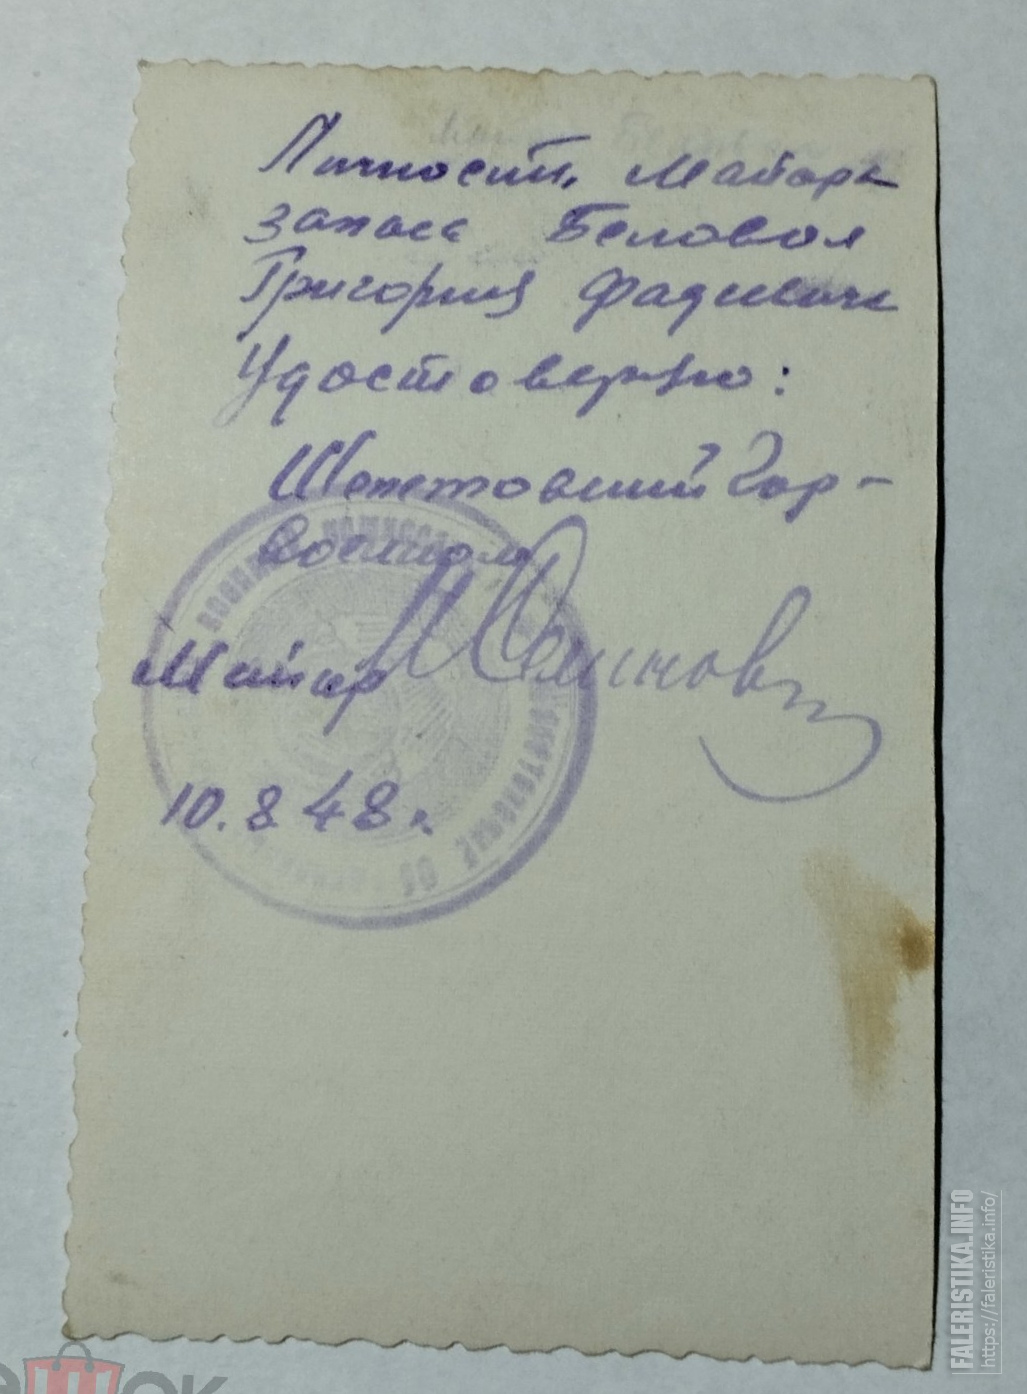 Личность Майора
запаса Беловол
Григория Фадеевича
Удостоверяю:
Шепетовский Гор-
военком
Майор
10.8.48 г.
FALERISTIKA.INFO
https://faleristika.info/